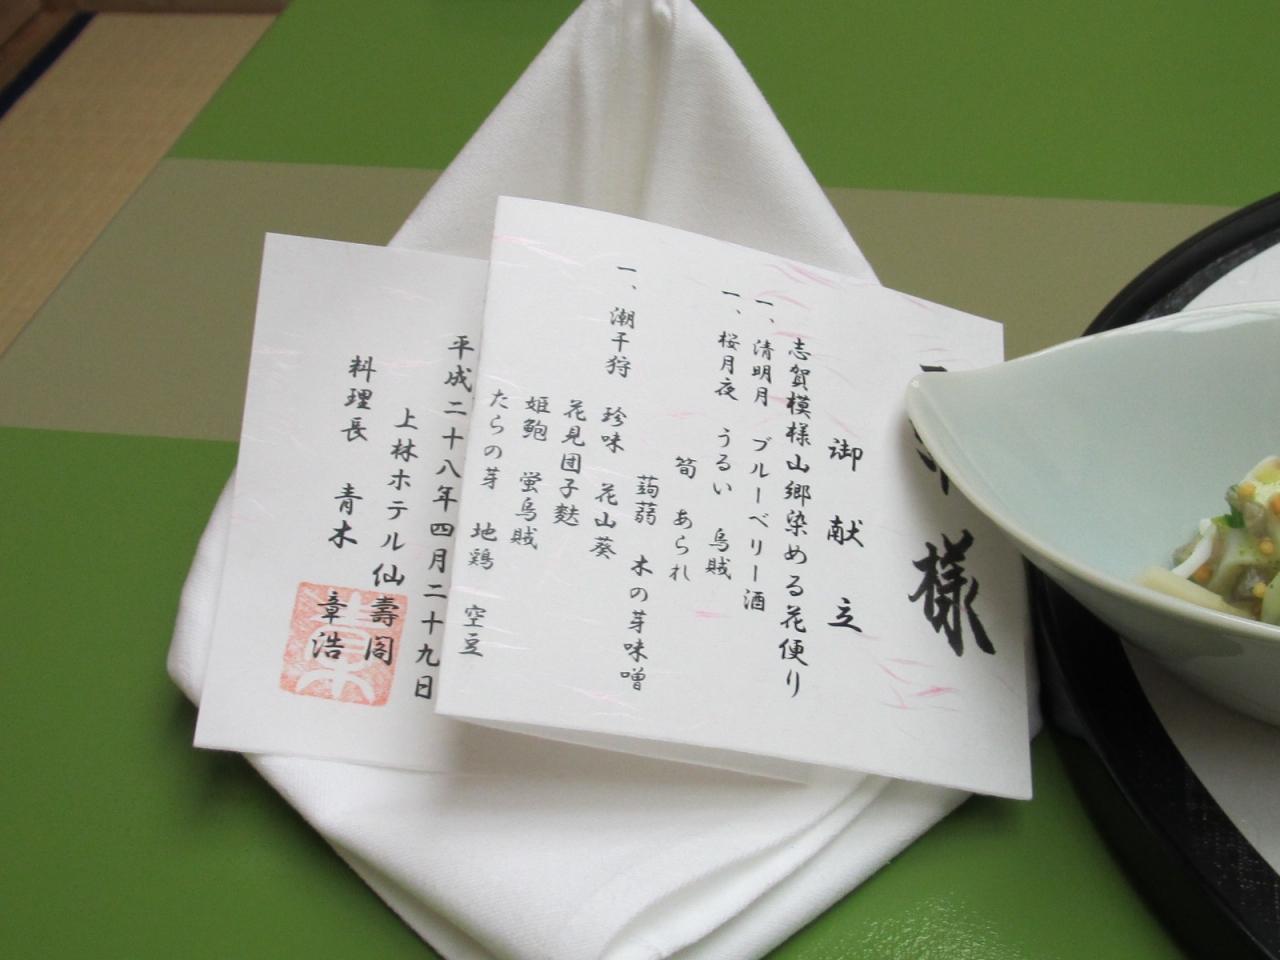 様
御献立
志賀模様山郷染める花便り
一、清明月 ブルーベリー酒
一、桜月夜 うるい 烏賊
筍 あられ
蒟蒻 木の芽味噌
一、潮干狩 珍味 花山葵
花見団子麩
姫鮑 蛍烏賊
たらの芽 地鶏 空豆
平成二十八年四月二十九日
上林ホテル仙壽閣
料理長 青木 章浩